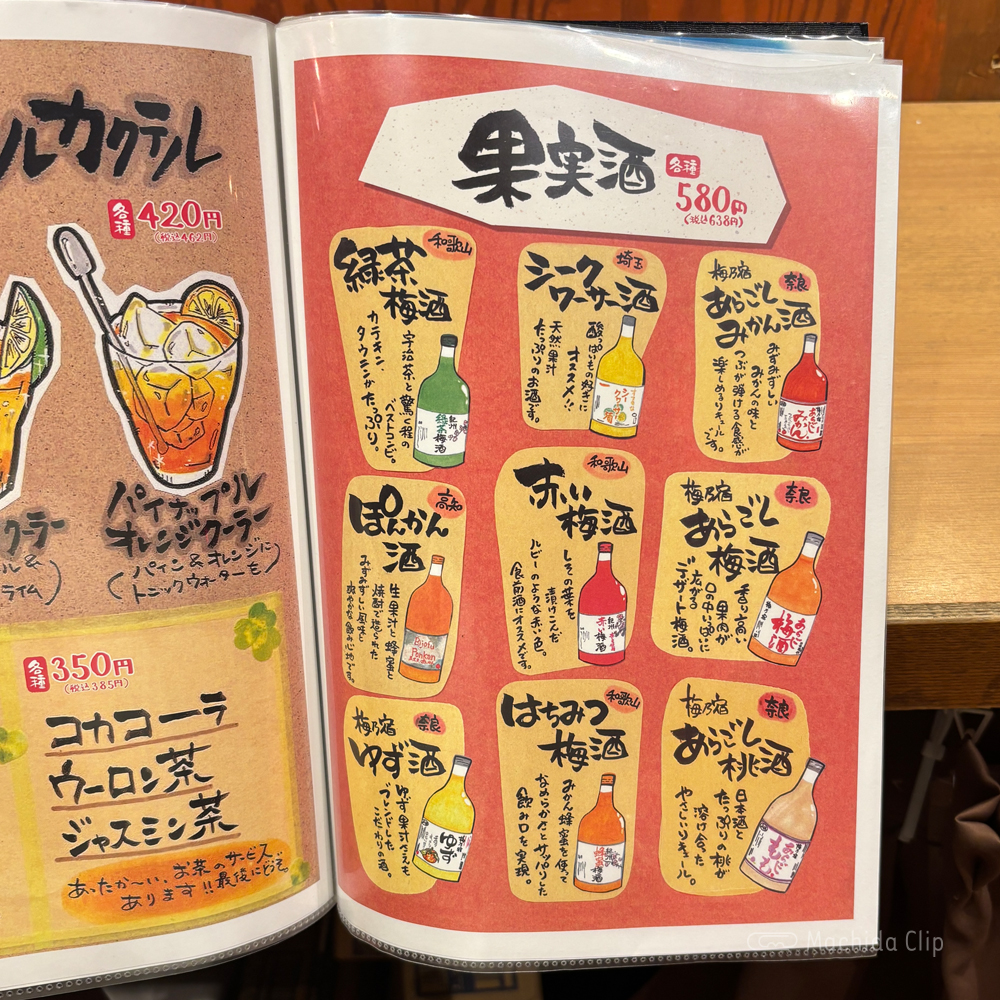 ルカクテル
各種
420円
(税込462円)
パイナップル
オレンジクーラー
(パイン&オレンジに
トニックウォーターも)
クーラー
ル&
ライム)
各種
350円
(税込385円)
コカコーラ
ウーロン茶
ジャスミン茶
あったか〜い、お茶のサービス、
あります!!最後にどうぞ。
果実酒
各種
580円
(税込638円)
和歌山
緑茶
梅酒
宇治茶と驚く程の
ベストコンビ。
カテキン、
タウニンがたっぷり。
紀州
緑茶梅酒
埼玉
シークワーサー酒
酸っぱいもの好きに
オススメ!!
天然果汁
たっぷりのお酒です。
梅乃宿
奈良
あらごし
みかん酒
みずみずしい
みかんの味と
つぶが弾ける食感が
楽しめるリキュール
です。
あらごし
みかん
高知
ぽんかん
酒
生果汁と蜂蜜と
焼酎で造られた
みずみずしい風味と
爽やかな飲み心地です。
Bijofu
Ponkan
和歌山
赤い
梅酒
しその葉を
漬けこんだ
ルビーのような赤い色。
食前酒にオススメです。
紀州
赤い梅酒
梅乃宿
奈良
あらごし
梅酒
香り高い
果肉が
口の中いっぱいに
広がる
デザート梅酒。
あらごし
梅酒
梅乃宿
奈良
ゆず酒
ゆず果汁さえも
ブレンドした
こだわりの酒。
ゆず
和歌山
はちみつ
梅酒
みかん蜂蜜を使って
なめらかさとサッパリした
飲み口を実現。
蜂蜜梅酒
梅乃宿
奈良
あらごし
桃酒
日本酒と
たっぷりの桃が
溶け合った
やさしいリキュール。
あらごし
もも
Machida Clip